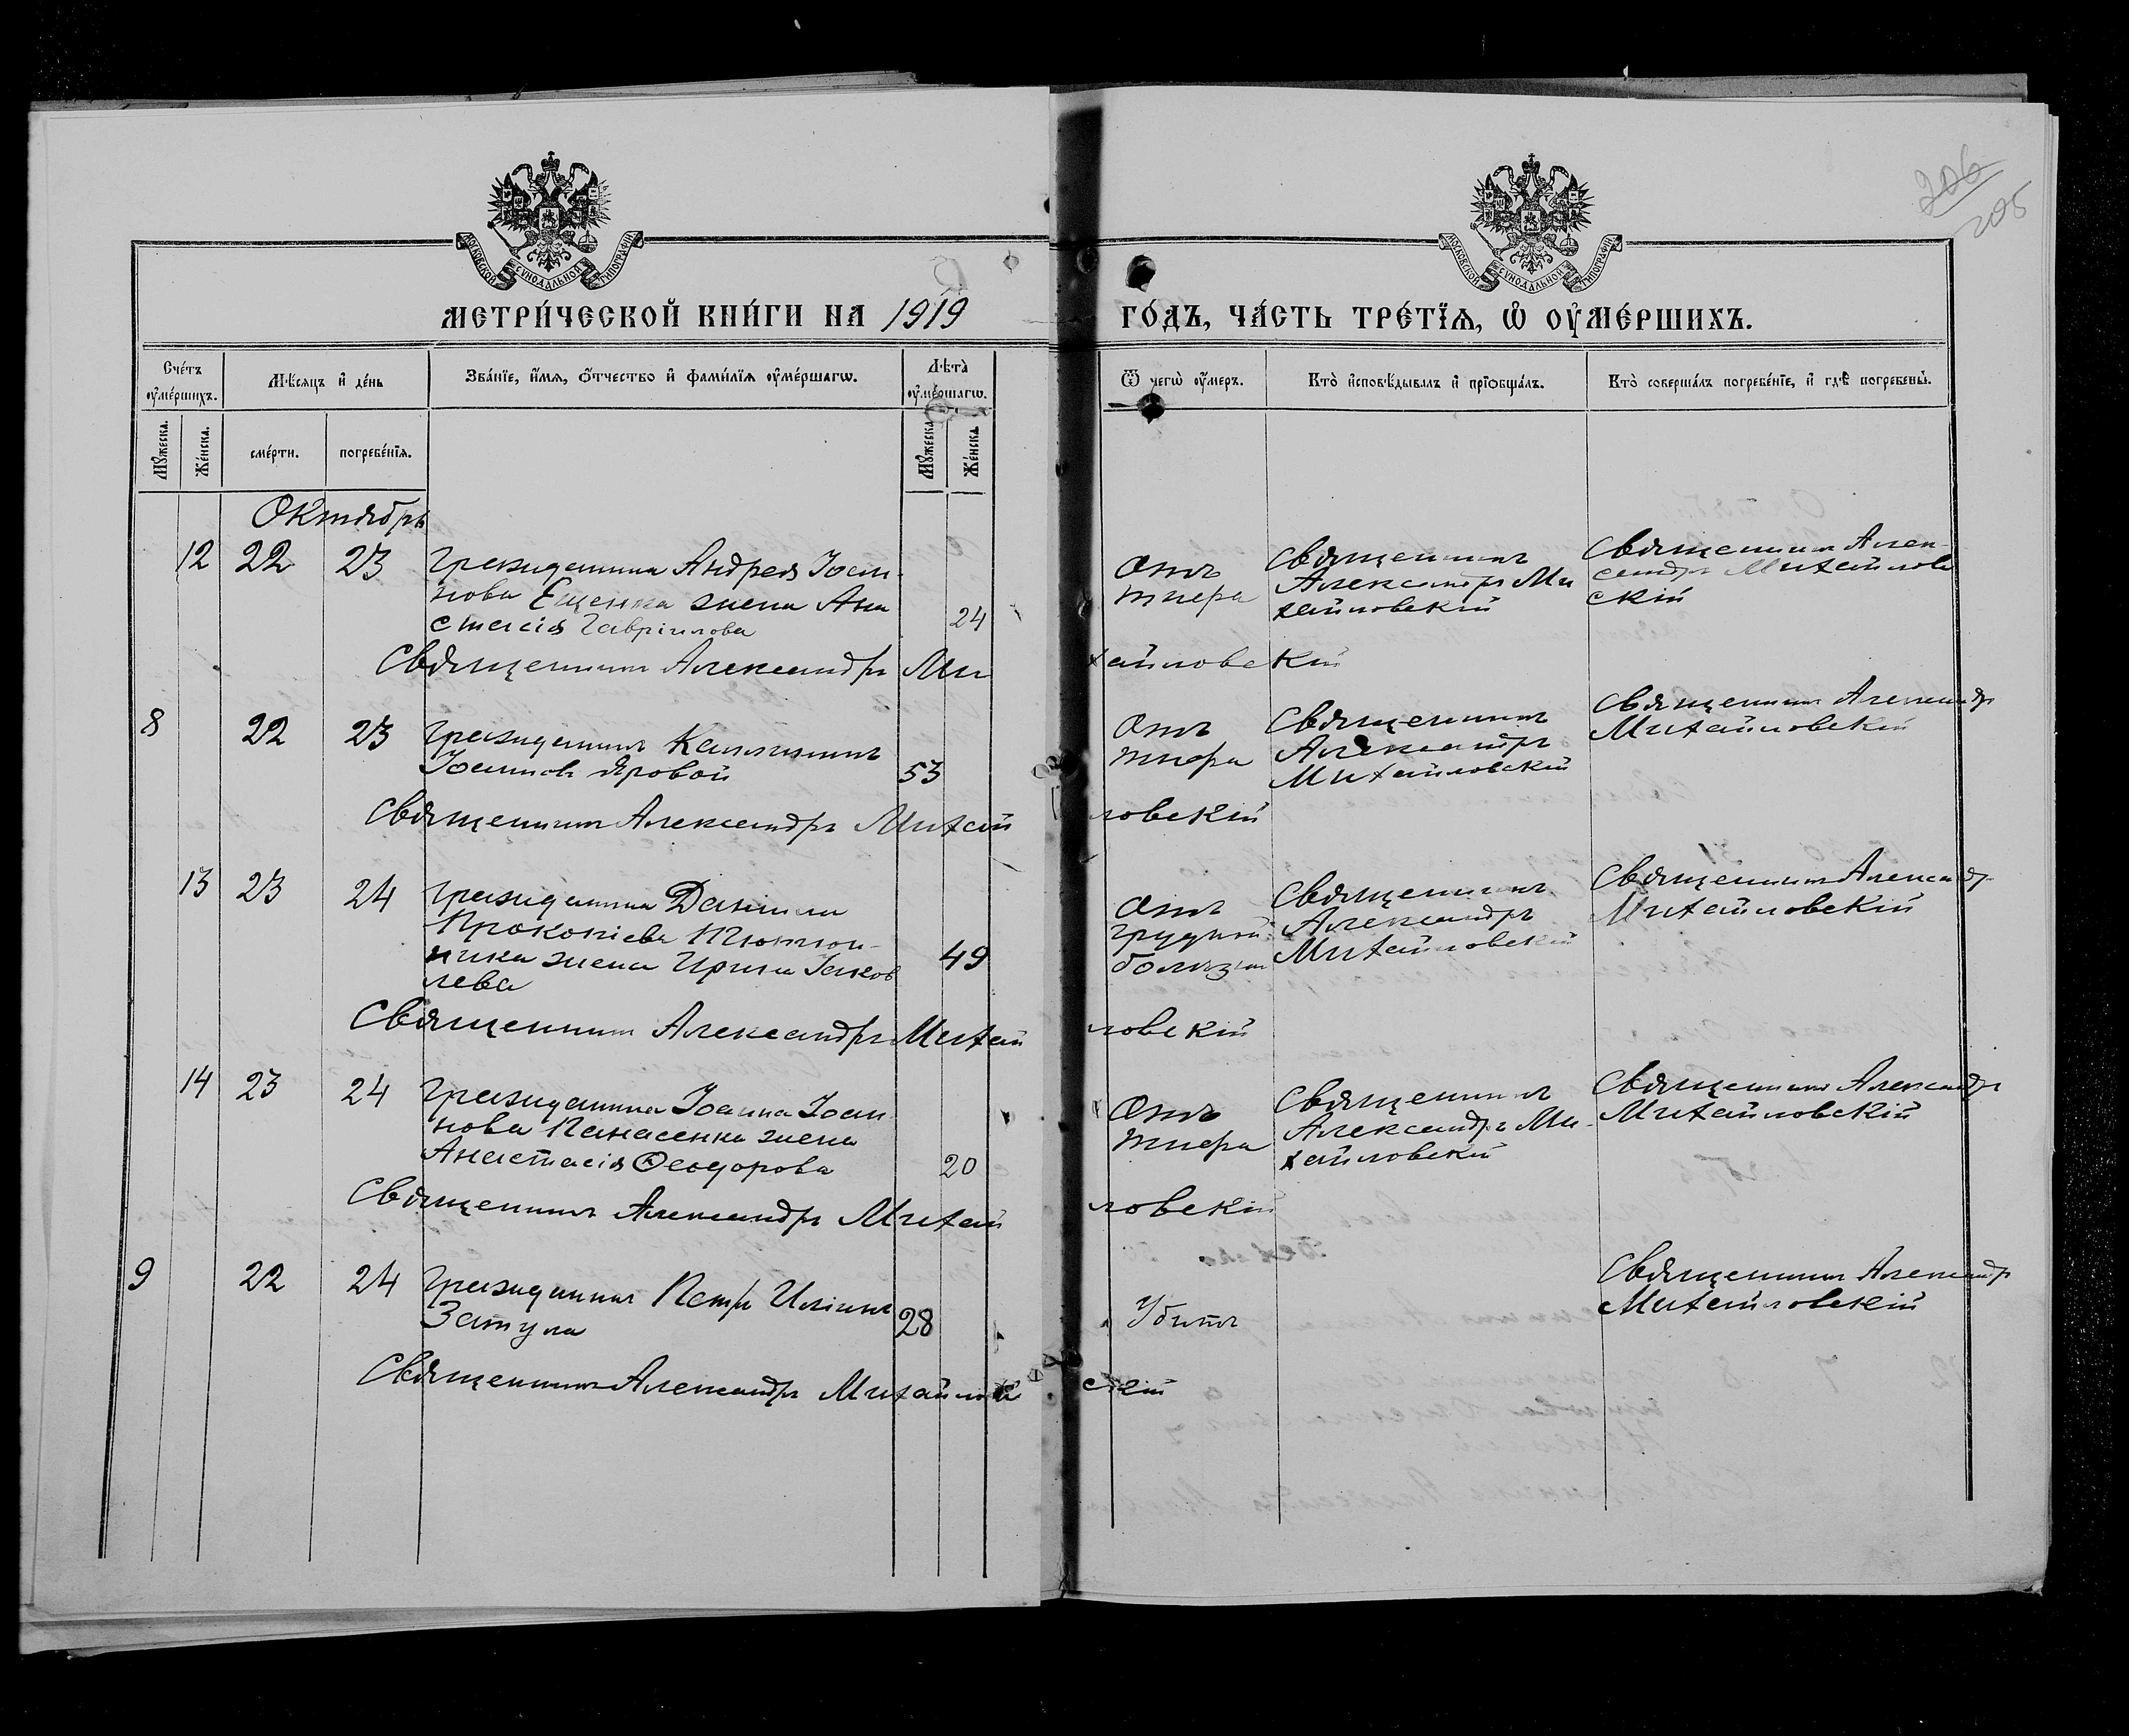 206
205
МОСКОВСКОЙ СѴНОДАЛЬНОЙ ТИПОГРАФІИ
МОСКОВСКОЙ СѴНОДАЛЬНОЙ ТИПОГРАФІИ
МЕТРИ́ЧЕСКОЙ КНИ́ГИ НА 1919 ГО́ДЪ, ЧА́СТЬ ТРЕ́ТЇѦ, Ѡ ОУ҆МЕ́РШИХЪ.
Сче́тъ оу҆ме́ршихъ.
Мѣ́сѧцъ и҆ де́нь
Зва́нїе, и҆́мѧ, ѻ҆́тчество и҆ фами́лїѧ оу҆ме́ршагѡ.
Лѣ́та оу҆ме́ршагѡ.
Ѿ чегѡ̀ оу҆́меръ.
Кто̀ и҆сповѣ́дывалъ и҆ прїѻбща́лъ.
Кто̀ соверша́лъ погребе́нїе, и҆ гдѣ̀ погребены̀.
Мꙋ́жеска.
Же́нска.
сме́рти.
погребе́нїѧ.
Мꙋ́жеска
Же́нска
Октябрь
12 22 23 гражданина Андрея Іоан-
нова Ещенка жена Ана
стасія Гавріилова 24
Отъ
тифа
Священникъ
Александръ Ми
хайловскій
Священникъ Алек-
сандръ Михайлов
скій
Священникъ Александръ Михайловскій
8 22 23 гражданинъ
Іоанновъ Яровой 53
Отъ
тифа
Священникъ
Александръ
Михайловскій
Священникъ Александръ
Михайловскій
Священникъ Александръ Михайловскій
13 23 24 гражданина Даніила
Прокопіева Тютюн-
ника жена Ирина Іаков
лева 49
Отъ
грудной
болѣзни
Священникъ
Александръ
Михайловскій
Священникъ Александръ
Михайловскій
Священникъ Александръ Михайловскій
14 23 24 гражданина Іоанна Іоан
нова Панасенка жена
Анастасія Ѳеодорова 20
Отъ
тифа
Священникъ
Александръ Ми-
хайловскій
Священникъ Александръ
Михайловскій
Священникъ Александръ Михайловскій
9 22 24 гражданинъ Петръ Иліинъ
Затула 28
Убитъ
Священникъ Александръ
Михайловскій
Священникъ Александръ Михайловскій